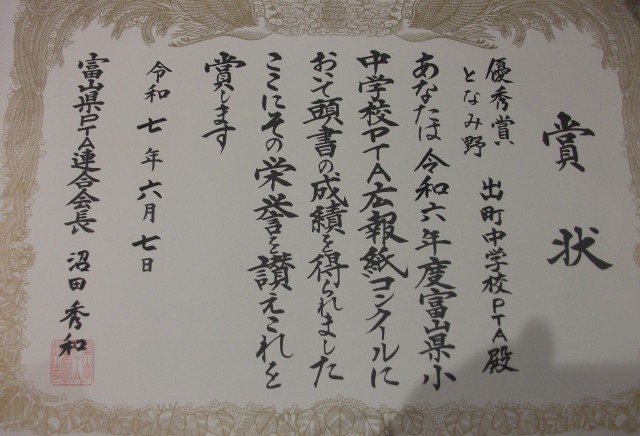 賞状
優秀賞
となみ野 出町中学校PTA殿
あなたは令和六年度富山県小
中学校PTA広報紙コンクールに
おいて頭書の成績を得られました
ここにその栄誉を讃えこれを
賞します
令和七年六月七日
富山県PTA連合会長 沼田秀和